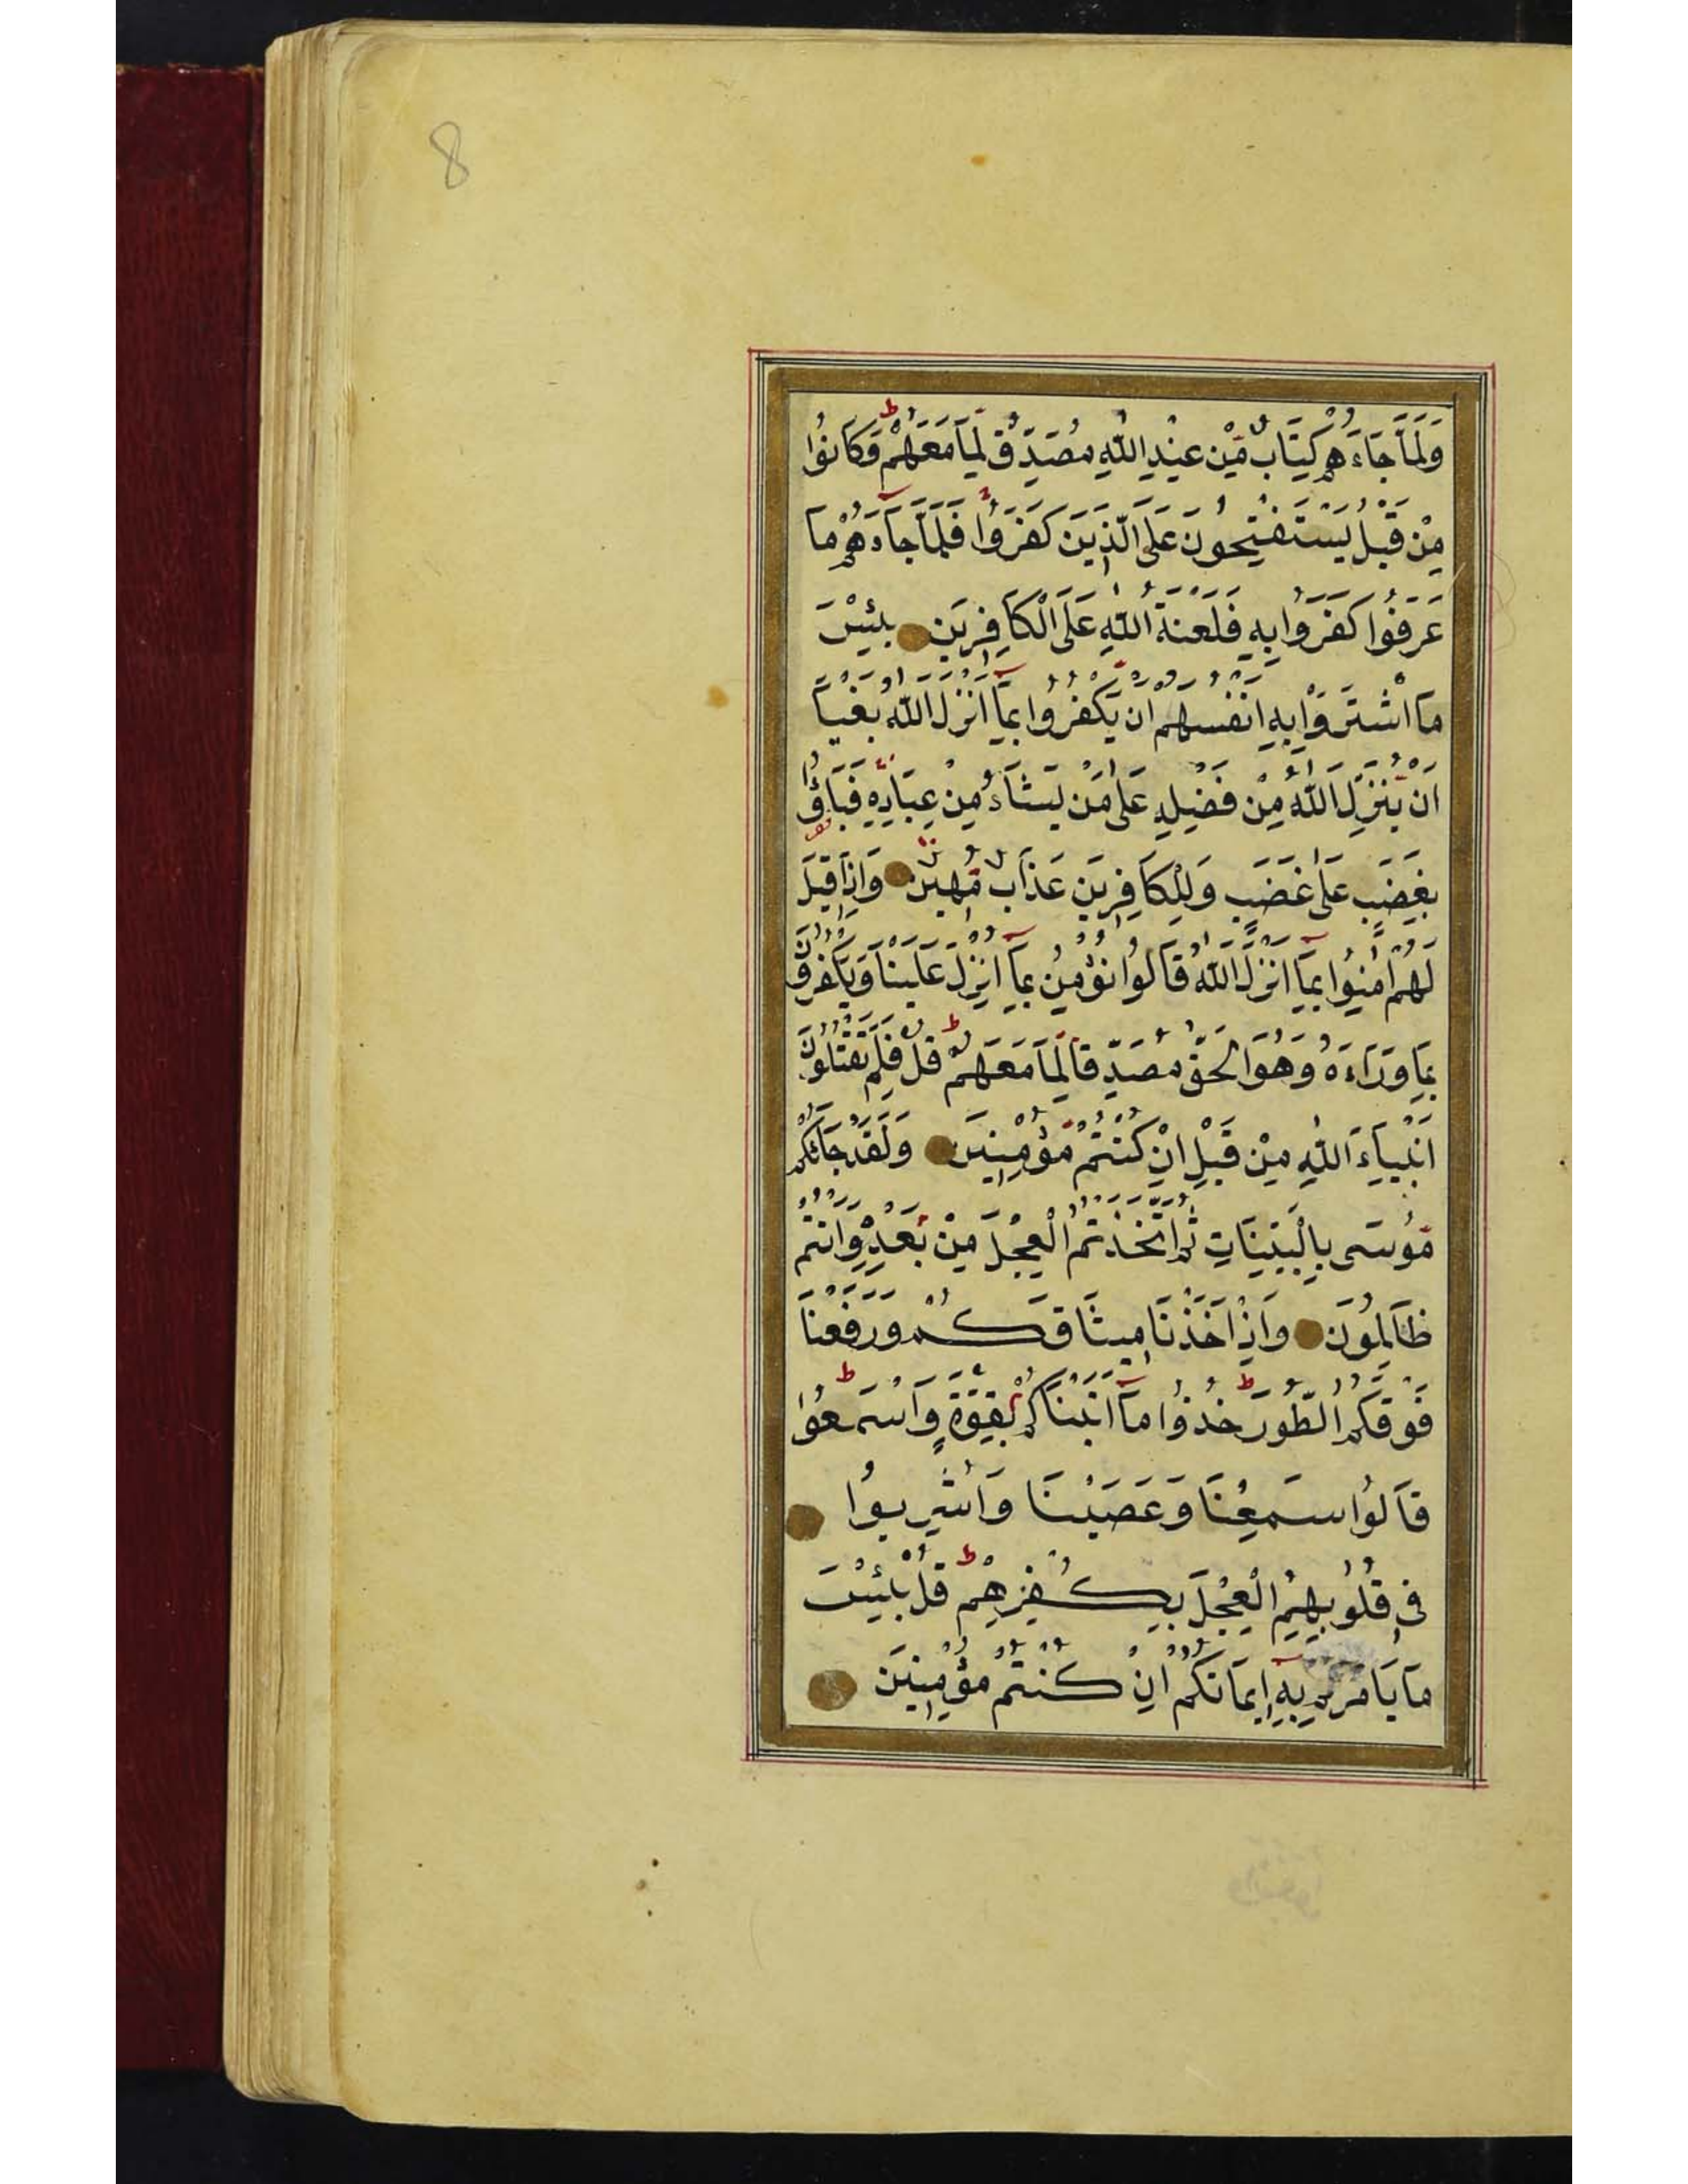 8
وَلَمَّا جَاءَهُمْ كِتَابٌ مِّنْ عِنْدِ اللّٰهِ مُصَدِّقٌ لِّمَا مَعَهُمْ ط وَكَانُوا
مِنْ قَبْلُ يَسْتَفْتِحُونَ عَلَى الَّذِيَنَ كَفَرَوُا فَلَمَّا جَآءَهُمْ مَا
عَرَفُوا كَفَرَوُا بِهِ فَلَعْنَةُ اللّٰهِ عَلَى الْكَافِرِيَن بِئْسَ
مَا اشْتَرَوْا بِهِ اَنْفُسَهُمْ اَنْ يَّكْفُرُوا بِمَآ اَنْزَلَ اللّٰهُ بَغْيًا
اَنْ يُّنَزِّلَ اللّٰهُ مِنْ فَضْلِهِ عَلٰى مَنْ يَشَاءُ مِنْ عِبَادِهِ فَبَاؤُا
بِغَضَبٍ عَلٰى غَضَبٍ وَلِلْكَافِرِيَن عَذَابٌ مُّهِيٌن وَاِذَا قِيَلَ
لَهُمْ اٰمِنُوا بِمَآ اَنْزَلَ اللّٰهُ قَالُوا نُؤْمِنُ بِمَآ اُنْزِلَ عَلَيْنَا وَيَكْفُرُوُنَ
بِمَا وَرَاءَهُ وَهُوَ الْحَقُّ مُصَدِّقًا لِّمَا مَعَهُمْ ط قُلْ فَلِمَ تَقْتُلُوُنَ
اَنْبِيَاءَ اللّٰهِ مِنْ قَبْلُ اِنْ كُنْتُمْ مُّؤْمِنِيَن وَلَقَدْ جَائَكُمْ
مُّوُسَى بِالْبَيِّنَاتِ ثُمَّ اتَّخَذْتُمُ الْعِجْلَ مِنْ بَعْدِهِ وَاَنْتُمْ
ظَالِمُوُنَ وَاِذْ اَخَذْنَا مِيثَاقَكُمْ وَرَفَعْنَا
فَوْقَكُمُ الطُّوُرَ ط خُذُوا مَآ اٰتَيْنَاكُمْ بِقُوَّةٍ وَاسْمَعُوا ط
قَالُوُا سَمِعْنَا وَعَصَيْنَا وَاُشْرِبُوُا
فِى قُلُوُبِهِمُ الْعِجْلَ بِكُفْرِهِمْ ط قُلْ بِئْسَ
مَا يَاْمُرُكُمْ بِهِ اِيمَانُكُمْ اِنْ كُنْتُمْ مُؤْمِنِيَن